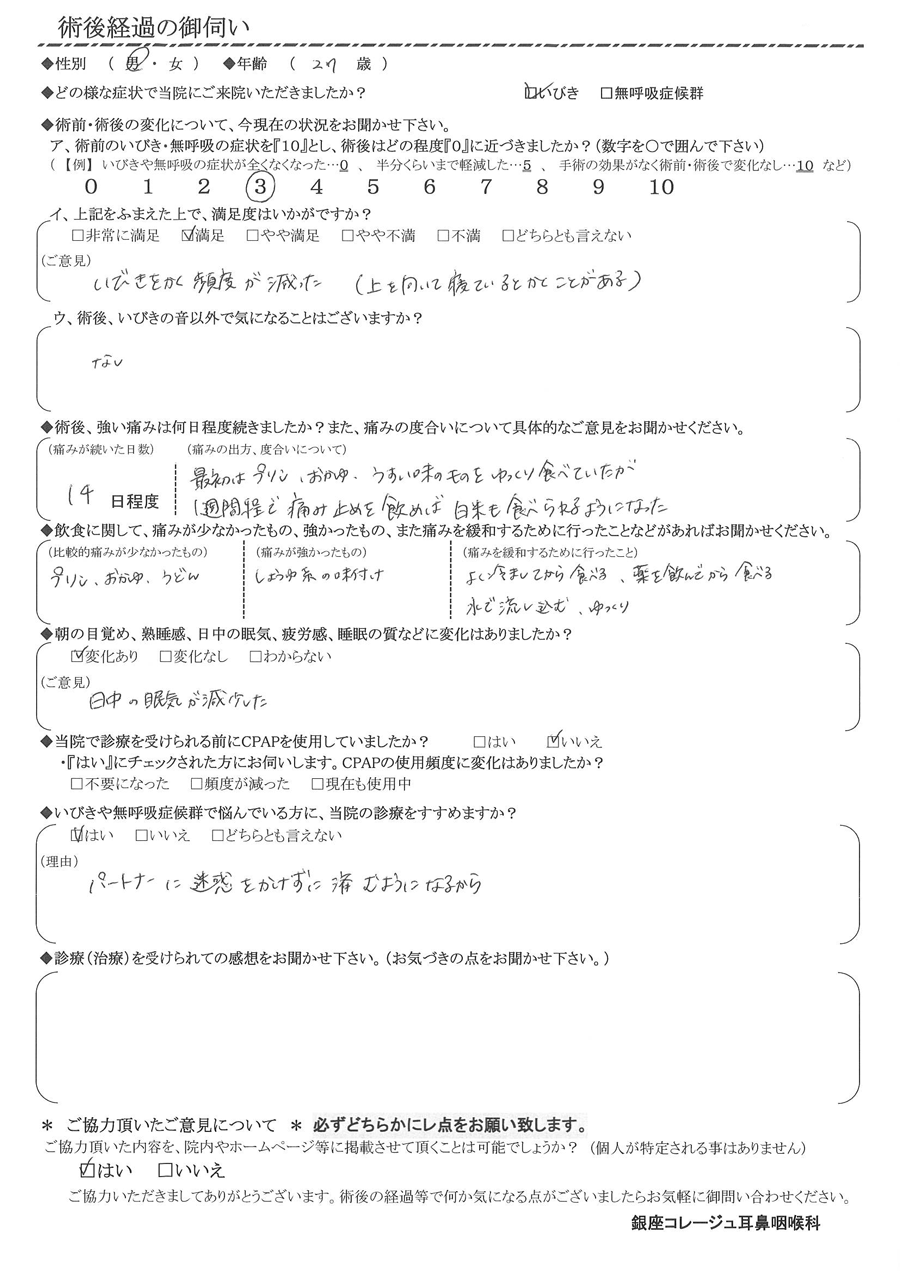 術後経過の御伺い
◆性別 （ 男 ・ 女 ） ◆年齢 （ 27 歳 ）
◆どの様な症状で当院にご来院いただきましたか？ ☑いびき □無呼吸症候群
◆術前・術後の変化について、今現在の状況をお聞かせ下さい。
ア、術前のいびき・無呼吸の症状を『10』とし、術後はどの程度『0』に近づきましたか？（数字を〇で囲んで下さい）
（ 【例】 いびきや無呼吸の症状が全くなくなった…0 、 半分くらいまで軽減した…5 、 手術の効果がなく術前・術後で変化なし…10 など）
0 1 2 3 4 5 6 7 8 9 10
イ、上記をふまえた上で、満足度はいかがですか？
□非常に満足 ☑満足 □やや満足 □やや不満 □不満 □どちらとも言えない
（ご意見）
いびきをかく頻度が減った （上を向いて寝ているとかくことがある）
ウ、術後、いびきの音以外で気になることはございますか？
ない
◆術後、強い痛みは何日程度続きましたか？また、痛みの度合いについて具体的なご意見をお聞かせください。
（痛みが続いた日数） （痛みの出方、度合いについて）
最初はプリン、おかゆ、うすい味のものをゆっくり食べていたが
14 日程度
1週間程で痛み止めを飲めば白米も食べられるようになった
◆飲食に関して、痛みが少なかったもの、強かったもの、また痛みを緩和するために行ったことなどがあればお聞かせください。
（比較的痛みが少なかったもの） （痛みが強かったもの） （痛みを緩和するために行ったこと）
プリン、おかゆ、うどん しょうゆ系の味付け よく冷ましてから食べる、薬を飲んでから食べる
水で流し込む、ゆっくり
◆朝の目覚め、熟睡感、日中の眠気、疲労感、睡眠の質などに変化はありましたか？
☑変化あり □変化なし □わからない
（ご意見）
日中の眠気が減少した
◆当院で診療を受けられる前にCPAPを使用していましたか？ □はい ☑いいえ
・『はい』にチェックされた方にお伺いします。CPAPの使用頻度に変化はありましたか？
□不要になった □頻度が減った □現在も使用中
◆いびきや無呼吸症候群で悩んでいる方に、当院の診療をすすめますか？
☑はい □いいえ □どちらとも言えない
（理由）
パートナーに迷惑をかけずに済むようになるから
◆診療（治療）を受けられての感想をお聞かせ下さい。（お気づきの点をお聞かせ下さい。）
＊ ご協力頂いたご意見について ＊ 必ずどちらかにレ点をお願い致します。
ご協力頂いた内容を、院内やホームページ等に掲載させて頂くことは可能でしょうか？ （個人が特定される事はありません）
☑はい □いいえ
ご協力いただきましてありがとうございます。術後の経過等で何か気になる点がございましたらお気軽に御問い合わせください。
銀座コレージュ耳鼻咽喉科